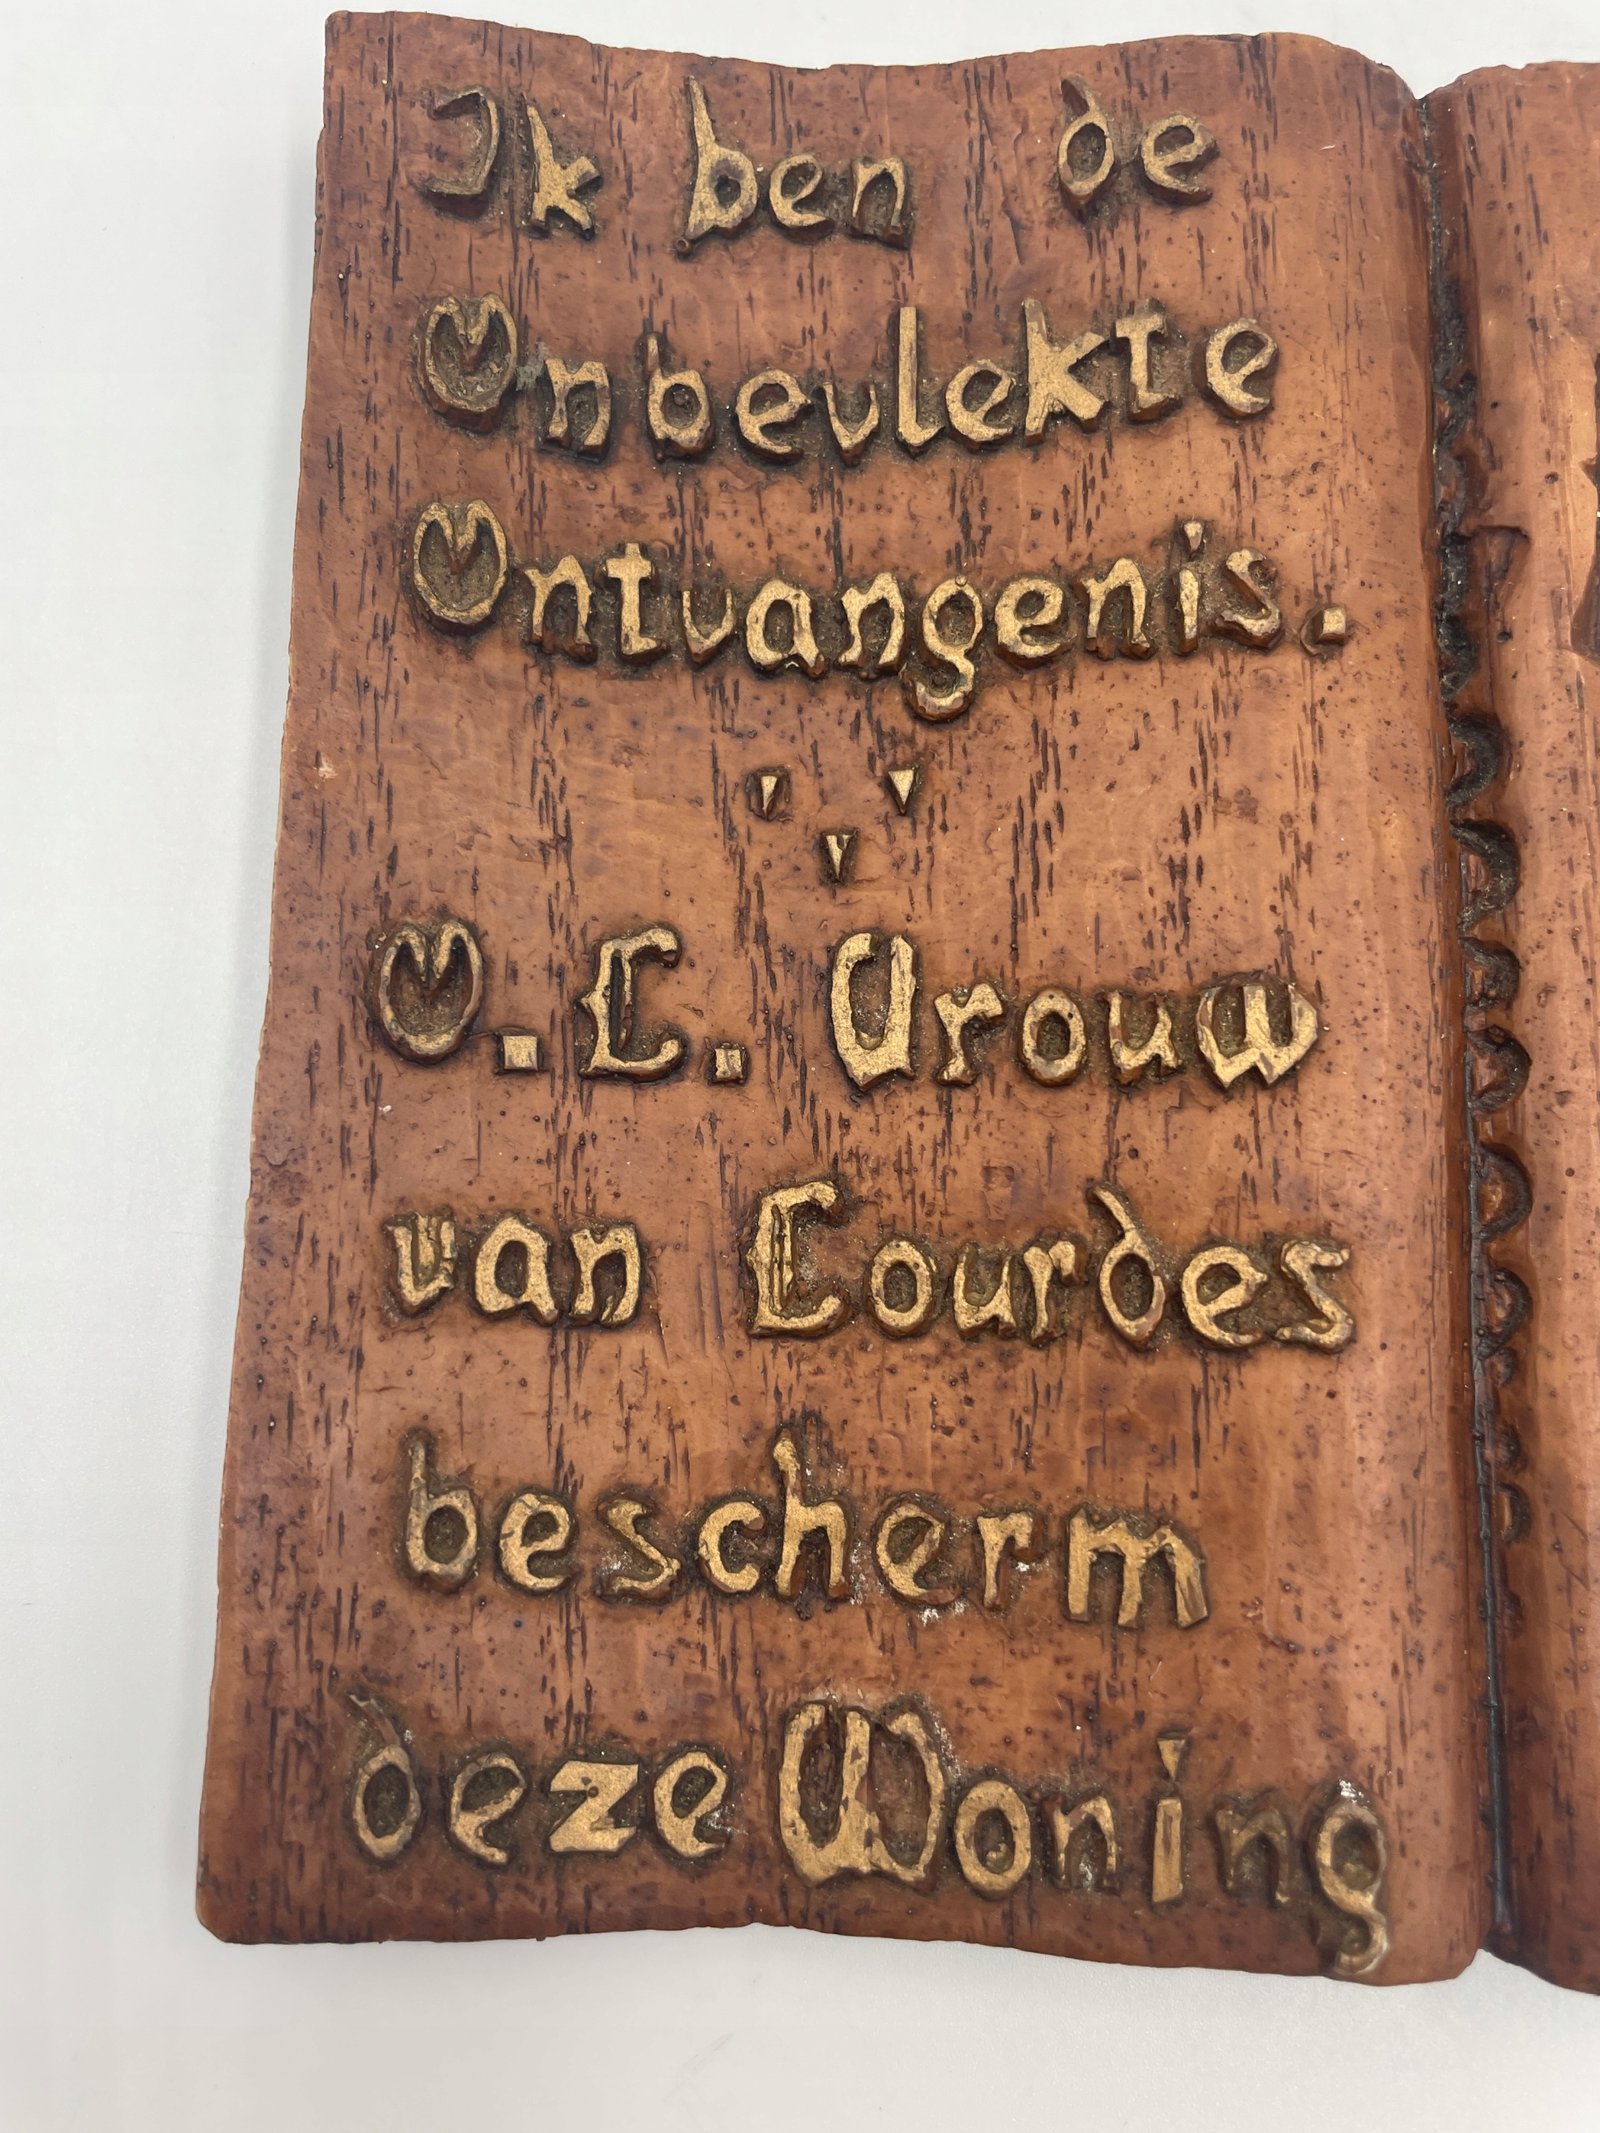 Ik ben de
Onbevlekte
Ontvangenis.
O.L. Vrouw
van Lourdes
bescherm
deze Woning